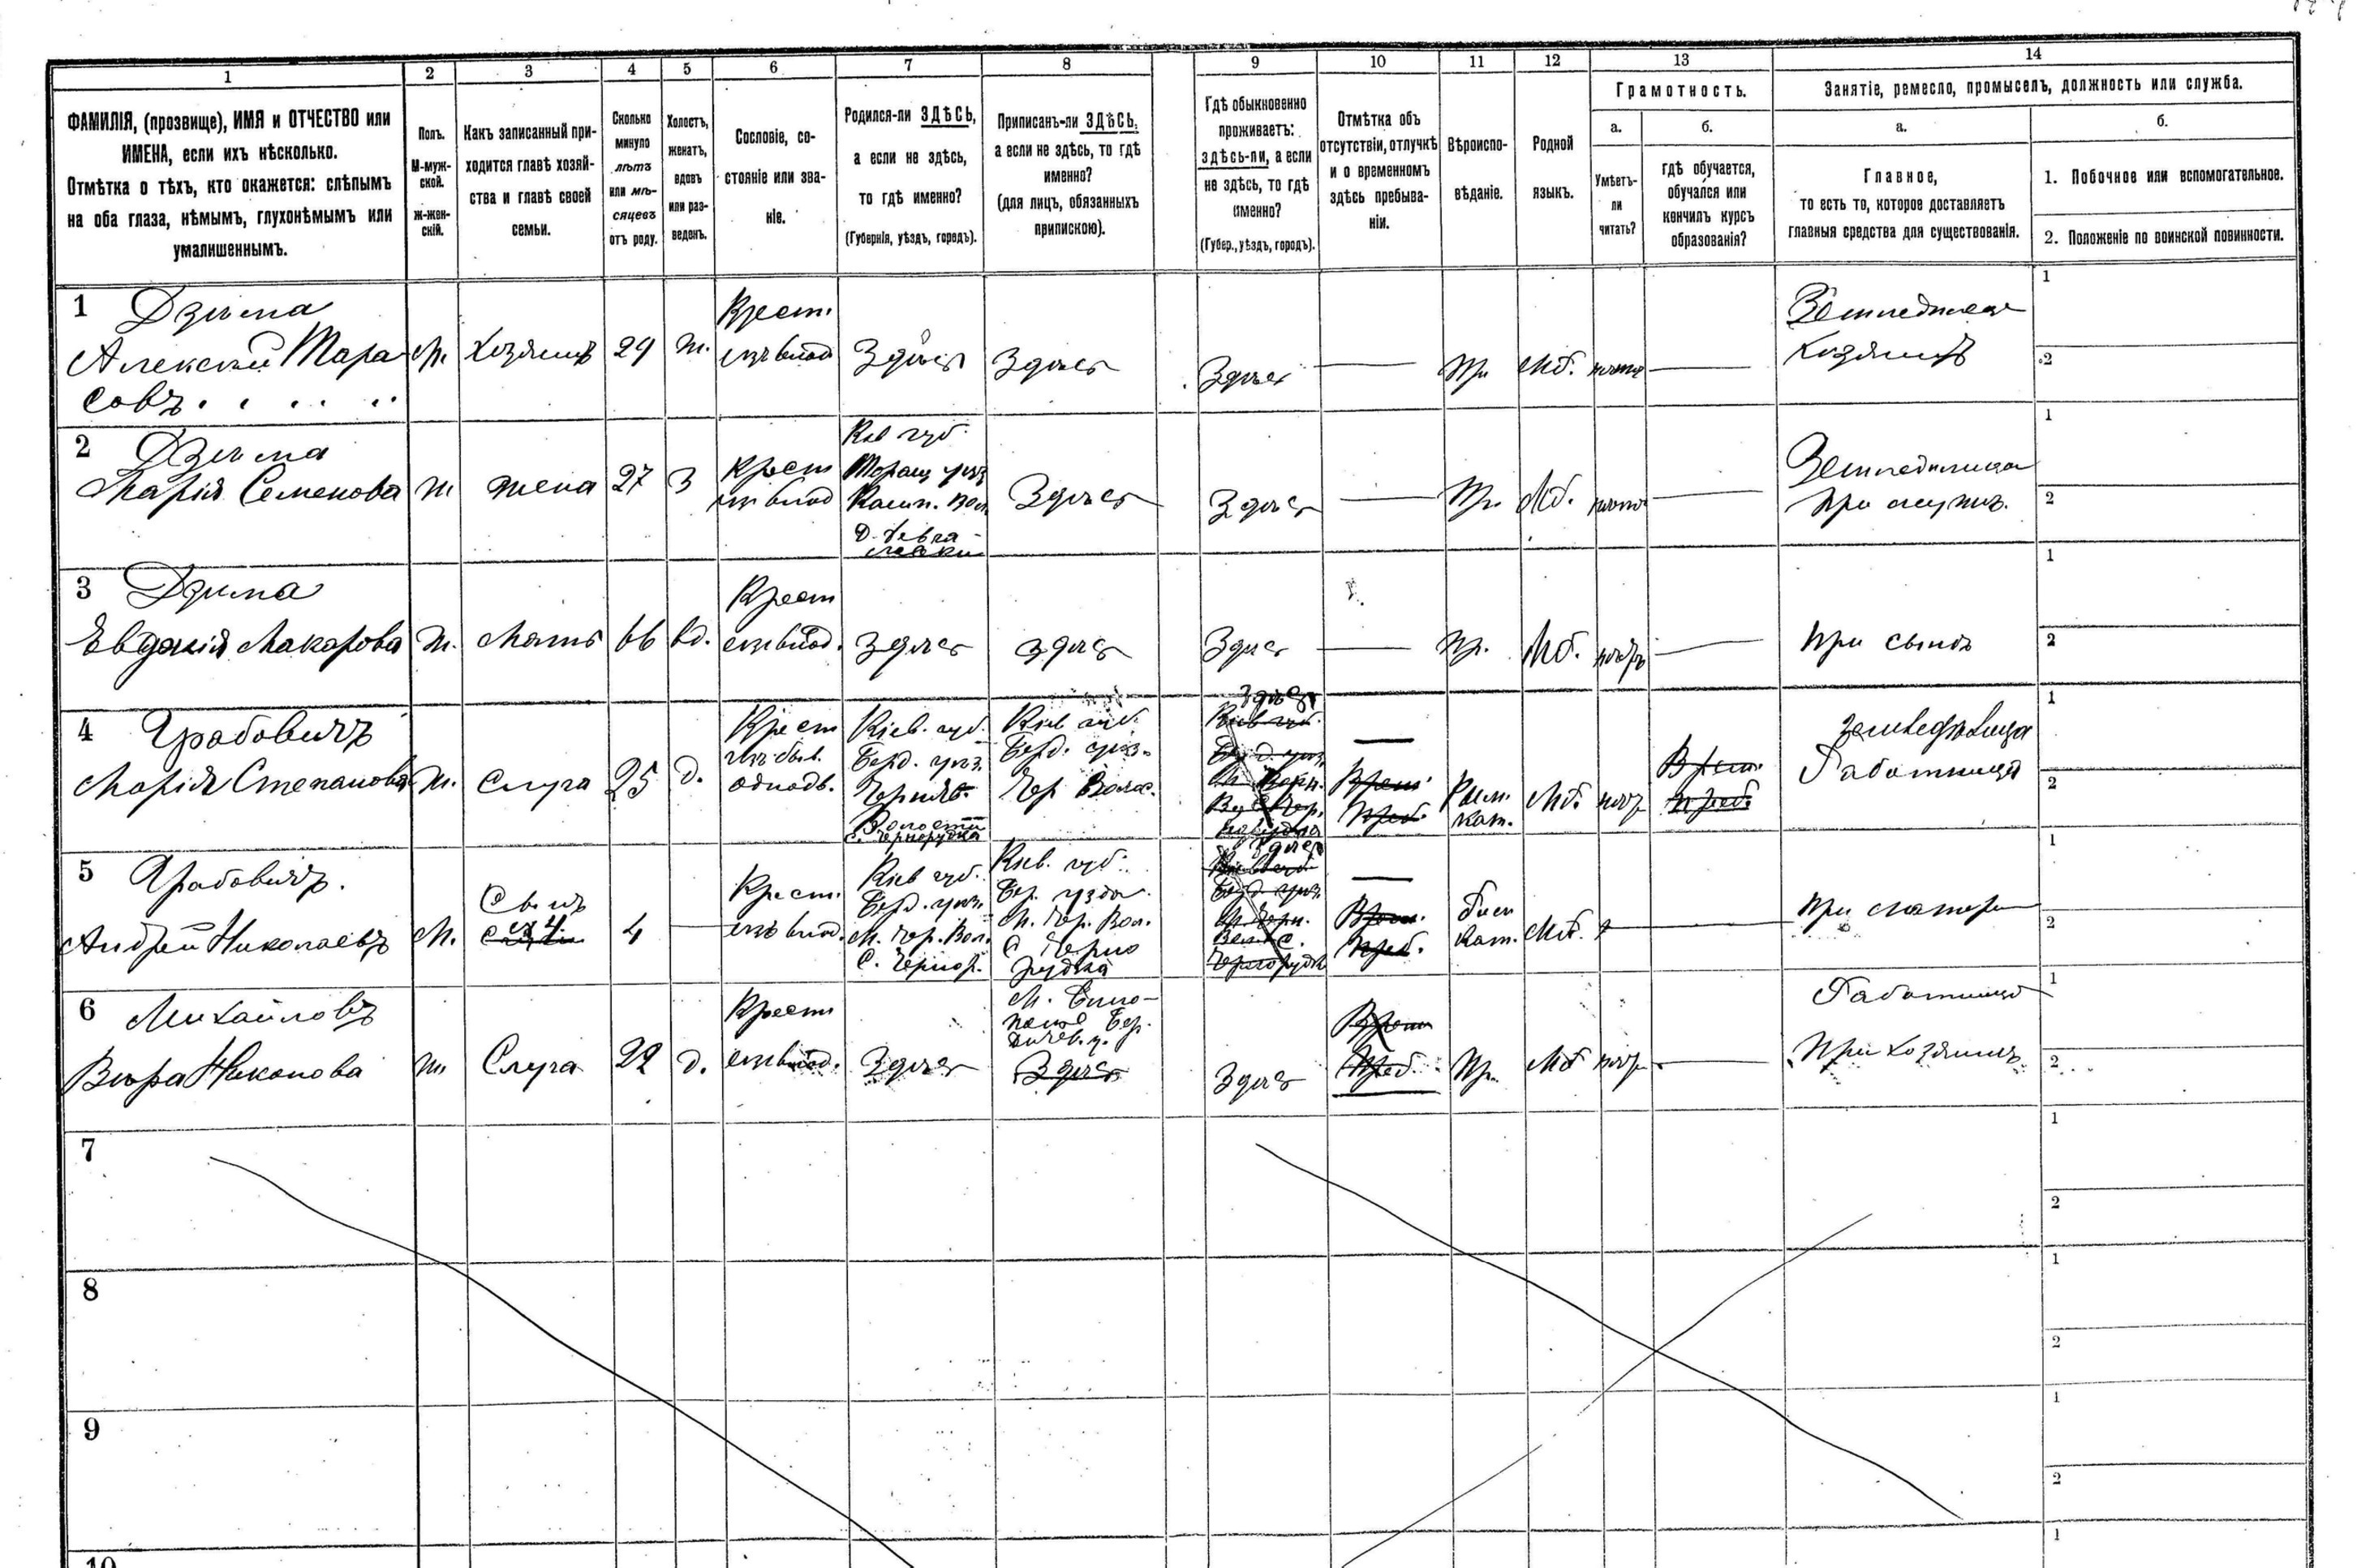 1
2
3
4
5
6
7
8
9
10
11
12
13
14
ФАМИЛІЯ, (прозвище), ИМЯ и ОТЧЕСТВО или
ИМЕНА, если ихъ нѣсколько.
Отмѣтка о тѣхъ, кто окажется: слѣпымъ
на оба глаза, нѣмымъ, глухонѣмымъ или
умалишеннымъ.
Полъ.
М-муж-
ской.
ж-жен-
скій.
Какъ записанный при-
ходится главѣ хозяй-
ства и главѣ своей
семьи.
Сколько
минуло
лѣтъ
или мѣ-
сяцевъ
отъ роду.
Холостъ,
женатъ,
вдовъ
или раз-
веденъ.
Сословіе, со-
стояніе или зва-
ніе.
Родился-ли ЗДѢСЬ,
а если не здѣсь,
то гдѣ именно?
(Губернія, уѣздъ, городъ).
Приписанъ-ли ЗДѢСЬ,
а если не здѣсь, то гдѣ
именно?
(для лицъ, обязанныхъ
припискою).
Гдѣ обыкновенно
проживаетъ:
здѣсь-ли, а если
не здѣсь, то гдѣ
именно?
(Губер., уѣздъ, городъ).
Отмѣтка объ
отсутствіи, отлучкѣ
и о временномъ
здѣсь пребыва-
ніи.
Вѣроиспо-
вѣданіе.
Родной
языкъ.
Грамотность.
а.
Умѣетъ-
ли
читать?
б.
гдѣ обучается,
обучался или
кончилъ курсъ
образованія?
Занятіе, ремесло, промыселъ, должность или служба.
а.
Главное,
то есть то, которое доставляетъ
главныя средства для существованія.
б.
1. Побочное или вспомогательное.
2. Положеніе по воинской повинности.
1 Дзюма
Алексѣй Тара
совъ
М. Хозяинъ 29 ж.
Крест.
изъ влад
Здѣсь Здѣсь Здѣсь — Пр. Мб. —
хозяинъ
1
2
2 Дзюма
Марія Семенова
ж жена 27 З
Крест
изъ влад
Кіев губ.
Д.
Здѣсь Здѣсь — Пр. Мб. —
Земледѣлица
при мужѣ.
1
2
3 Дзюма
Евдокія Макарова
ж. Мать 66 вд.
Крест
изъ влад.
здѣсь здѣсь Здѣсь — Пр. Мб. —
при сынѣ
1
2
4 Грабовичъ
Марія Степанова
ж. Слуга 25 д.
Крест
изъ быв.
однодв.
Кіев. губ.
Берд. уѣз.
Волости
с. Чернорудка
Кіев губ.
Берд. уѣз.
Чер Волос.
Здѣсь
Кіев губ.
Врем.
преб.
Рим.
кат.
Мб.
Врем.
преб.
земледѣлица
Работница
1
2
5 Грабовичъ.
Андрей Николаевъ
М.
Сынъ
4 —
Крест.
изъ влад.
Кіев губ.
Берд. уѣз.
М. Чер. Вол.
С. Чернор.
Кіев. губ.
Бер. уѣзда
М. Чер. Вол.
С Черно
рудка
Здѣсь
Врем.
преб.
Рим
кат. Мб. —
при матери
1
2
6 Михайловъ
Вѣра Никонова
ж. Слуга 22 д.
Крест
изъ влад.
Здѣсь
М. Бѣло-
полье Бер-
дичев. у.
Здѣсь
Здѣсь
Врем
преб.
Пр. Мб —
Работница
при хозяинѣ
1
2
7
1
2
8
1
2
9
1
2
10
1